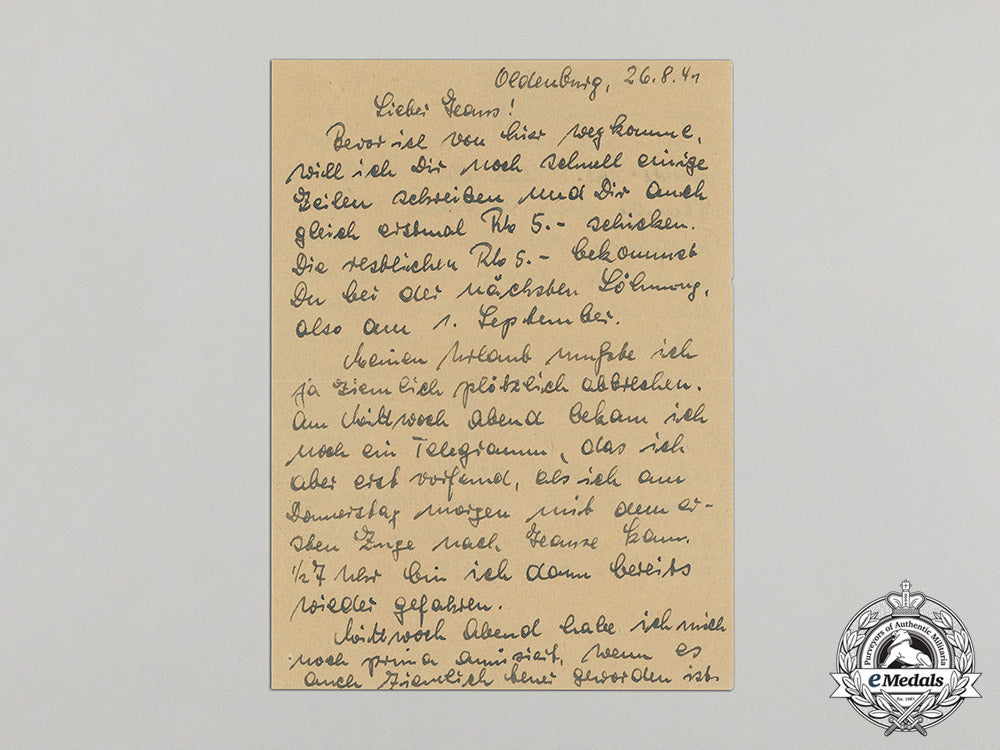 Oldenburg, 26.8.41
Lieber Hans!
Bevor ich von hier wegkomme,
will ich Dir noch schnell einige
Zeilen schreiben und Dir auch
gleich erstmal RM 5.- schicken.
Die restlichen RM 5.- bekommst
Du bei der nächsten Löhnung,
also am 1. September.
Meinen Urlaub mußte ich
ja ziemlich plötzlich abbrechen.
Am Mittwoch Abend bekam ich
noch ein Telegramm, das ich
aber erst vorfand, als ich am
Donnerstag morgen mit dem er-
sten Zuge nach Hause kam.
1/2 7 Uhr bin ich dann bereits
wieder gefahren.
Mittwoch Abend habe ich mich
noch prima amüsiert, wenn es
auch ziemlich teuer geworden ist.
Purveyors of Authentic Militaria
eMedals
Est. 1985